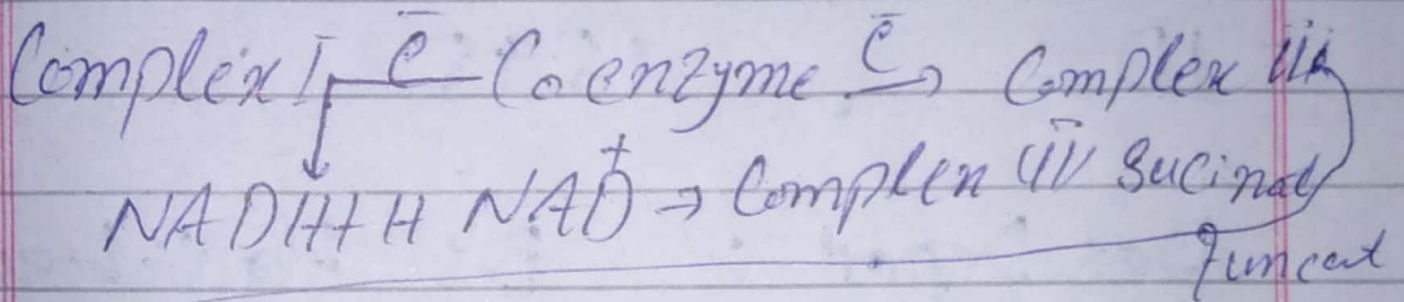 Complex I e̅ Coenzyme e̅ → Complex iii
NADH+H NAD⁺ → Complex IV Sucinat
Fumcat